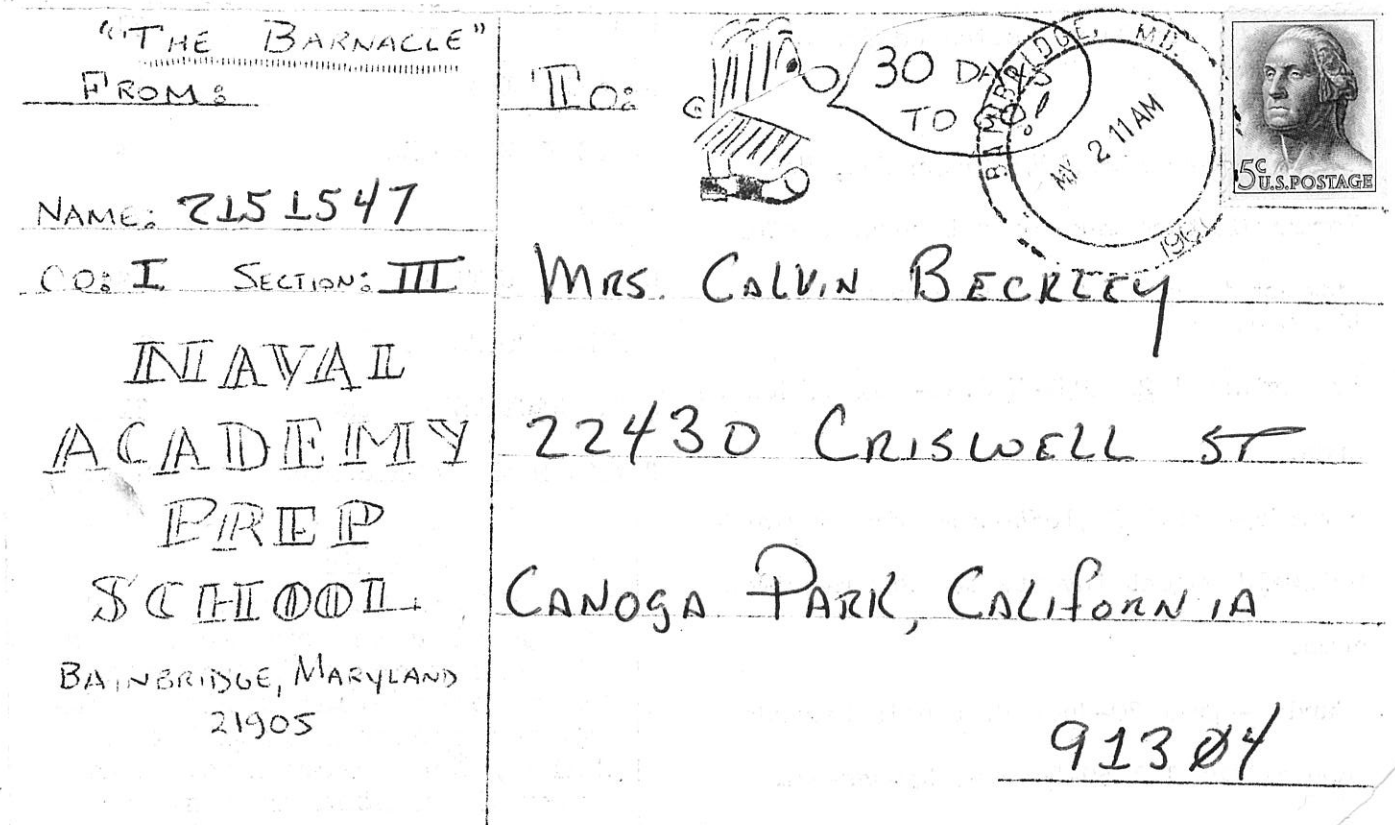 "THE BARNACLE"
FROM:
NAME: 2151547
CO: I SECTION: III
NAVAL
ACADEMY
PREP
SCHOOL
BAINBRIDGE, MARYLAND
21905
TO:
30 DAYS
TO GO!
BAINBRIDGE, MD.
MY 2 11 AM
5c
U.S. POSTAGE
MRS. CALVIN BECKLEY
22430 CRISWELL ST
CANOGA PARK, CALIFORNIA
91304